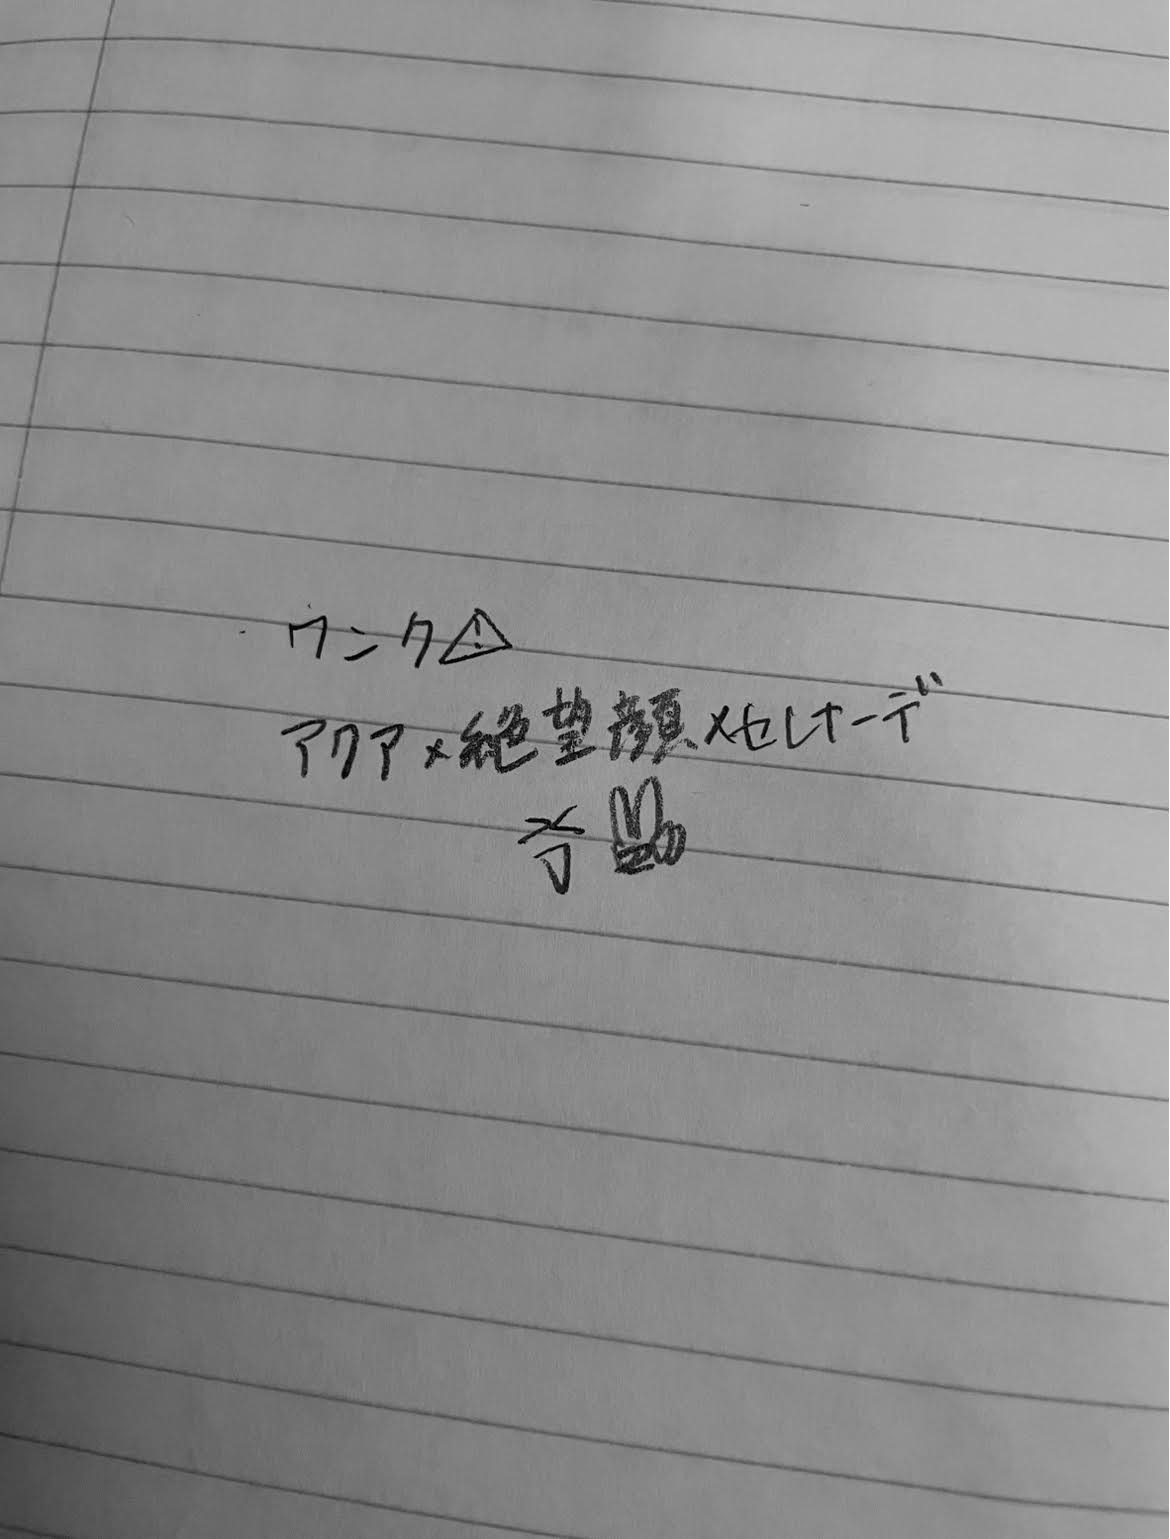 ワンク⚠
アクア×絶望顔×セレナーデ